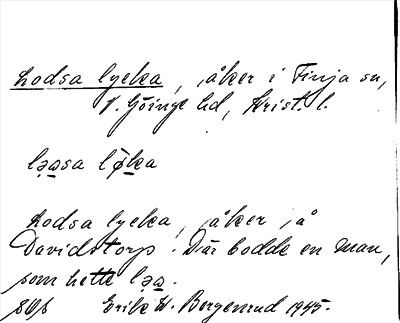 Lodsa lycka, åker i Finja sn,
V. Göinge hd, Krist. l.
ləasa løka
Lodsa lycka, åker, å
Davidstorp. Där bodde en man,
som hette ləa.
Erik W. Bergenrud 1945.